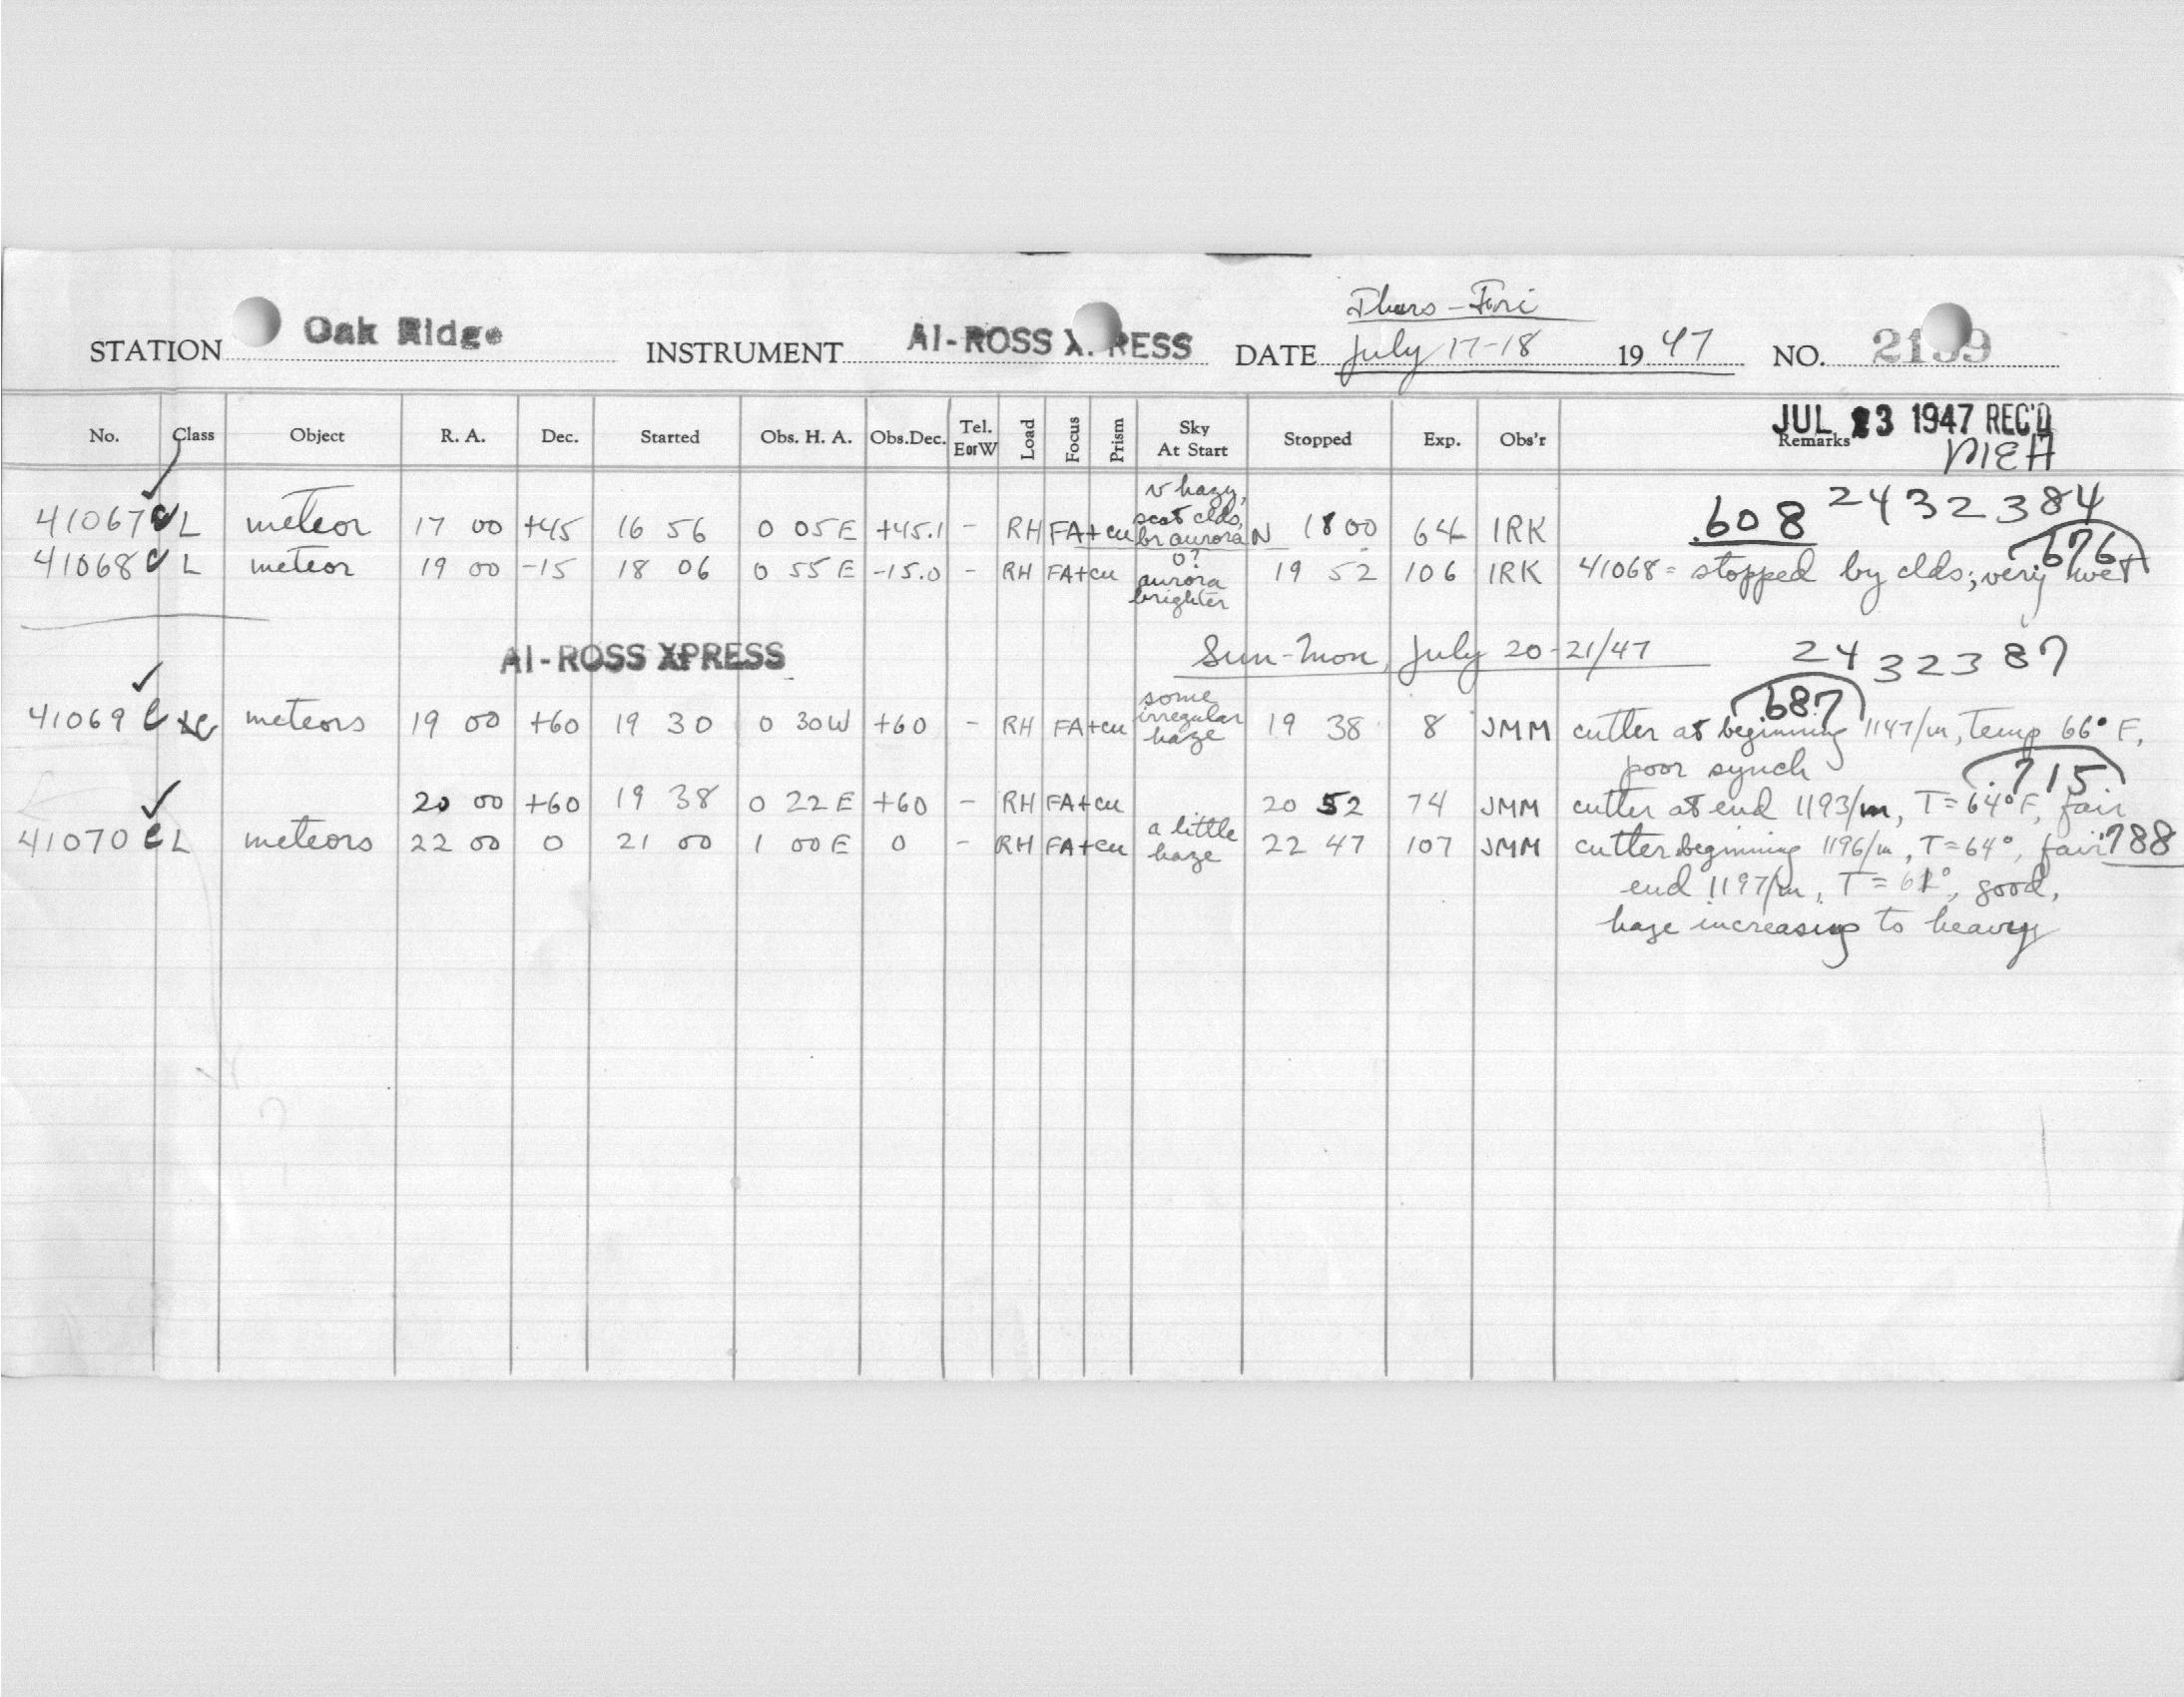 Thurs-Fri
STATION Oak Ridge INSTRUMENT AI-ROSS X RESS DATE July 17-18 1947 NO.
JUL 23 1947 REC'D
No. Class Object R. A. Dec. Started Obs. H. A. Obs.Dec. Tel. E or W Load Focus Prism Sky At Start Stopped Exp. Obs'r Remarks
MEH
v hazy,
scat clds,
br aurora N
.608 2432384
41067 L meteor 17 00 +45 16 56 0 05E +45.1 - RH FA+cu 18 00 64 IRK
.676
0?
aurora
brighter
41068 L meteor 19 00 -15 18 06 0 55E -15.0 - RH FA+cu 19 52 106 IRK 41068 = stopped by clds; very wet
AI-ROSS XPRESS Sun-Mon, July 20-21/47 2432387
some
irregular
haze
.687
41069 C meteors 19 00 +60 19 30 0 30W +60 - RH FA+cu 19 38 8 JMM cutter at beginning 1147/m, temp 66° F,
poor synch
.715
20 00 +60 19 38 0 22E +60 - RH FA+cu 20 52 74 JMM cutter at end 1193/m, T=64°F, fair
a little
haze
41070 C L meteors 22 00 0 21 00 1 00E 0 - RH FA+cu 22 47 107 JMM cutter beginning 1196/m, T=64°, fair .788
end 1197/m, T= good,
haze increasing to heavy